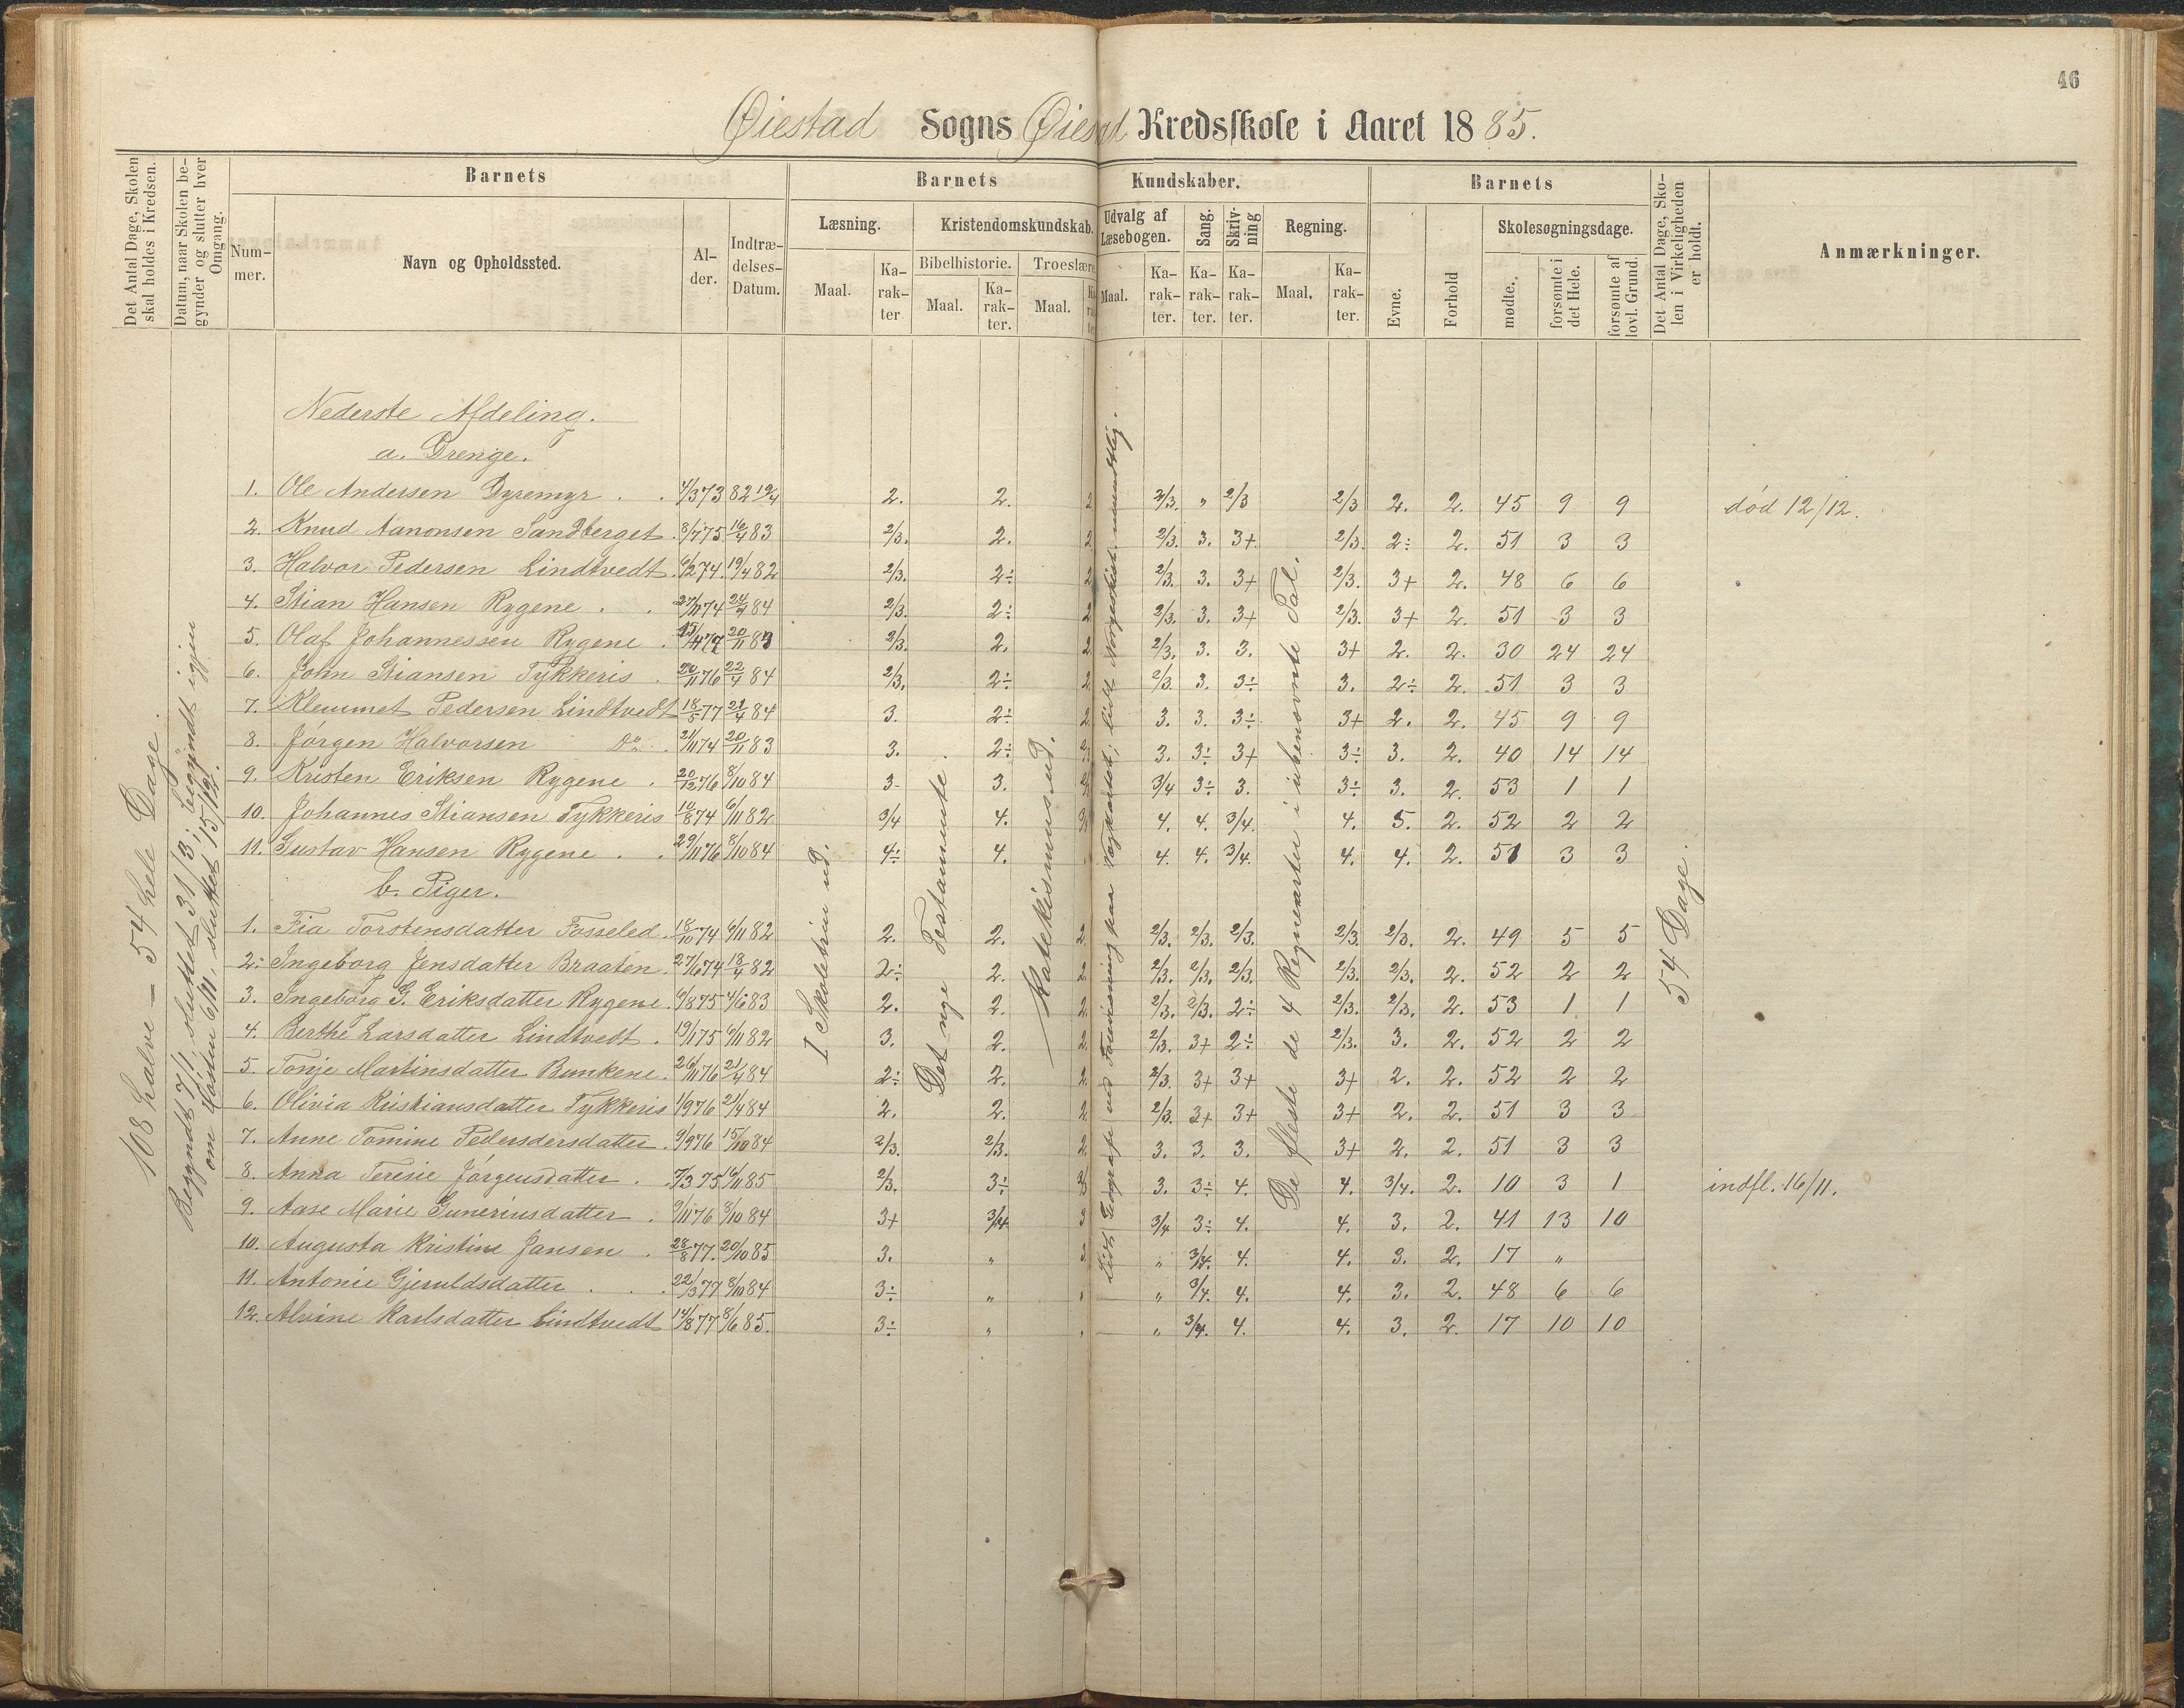 46
Øiestad Sogns Øiestad Kredsskole i Aaret 1885.
Det Antal Dage, Skolen skal holdes i Kredsen.
Datum, naar Skolen begynder og slutter hver Omgang.
Barnets
Barnets Kundskaber.
Barnets
Det Antal Dage, Skolen i Virkeligheden er holdt.
Anmærkninger.
Nummer.
Navn og Opholdssted.
Alder.
Indtrædelses-Datum.
Læsning.
Kristendomskundskab.
Udvalg af Læsebogen.
Sang.
Skrivning
Regning.
Evne.
Forhold
Skolesøgningsdage.
Bibelhistorie.
Troeslære
Maal.
Karakter
Maal.
Karakter.
Maal.
Karakter
Maal.
Karakter.
Karakter.
Karakter.
Maal.
Karakter.
mødte.
forsømte i det Hele.
forsømte af lovl. Grund.
108 halve - 54 hele Dage.
Begyndt 7/1, sluttet 31/3; begyndt igjen
om Høsten 6/11, sluttet 15/12.
I Skoletrin ud.
Det nye Testamente.
Katekismus ud.
De fleste de 4 Regnearter i ubenævnte Tal.
54 Dage.
Nederste Afdeling.
a. Drenge.
1. Ole Andersen Dyremyr . . 4/3 73 82 19/4 2. 2. 2 2/3. „ 2/3 2/3 2. 2. 45 9 9 død 12/12.
2. Knud Aanonsen Sandberget. 8/7 75 16/4 83 2/3. 2. 2 2/3. 3. 3+ 2/3. 2÷ 2. 51 3 3
3. Halvor Pedersen Lindtvedt. 6/2 74. 19/4 82 2/3. 2÷ 2 2/3. 3. 3+ 2/3. 3+ 2. 48 6 6
4. Stian Hansen Rygene . . 27/11 74 24/4 84 2/3. 2÷ 2 2/3. 3. 3+ 2/3. 3+ 2. 51 3 3
5. Olaf Johannessen Rygene . 15/4 77 20/11 83 2/3. 2. 2 2/3. 3. 3. 3+ 2. 2. 30 24 24
6. John Stiansen Tykkeris . 20/11 76 22/4 84 2/3. 2÷ 2 2/3 3. 3÷ 3. 2÷ 2. 51 3 3
7. Klemmet Pedersen Lindtvedt 18/5 77 21/4 84 3. 2÷ 2. 3. 3. 3÷ 3+ 2. 2. 45 9 9
8. Jørgen Halvorsen Do. 21/11 74 20/11 83 3. 2÷ 3. 3÷ 3+ 3÷ 3. 2. 40 14 14
9. Kristen Eriksen Rygene . 20/12 76 8/10 84 3. 3. 3/4 3÷ 3. 3÷ 3. 2. 53 1 1
10. Johannes Stiansen Tykkeris 10/8 74 6/11 82 3/4 4. 4. 4. 3/4. 4. 5. 2. 52 2 2
11. Gustav Hansen Rygene . . 29/11 76 8/10 84 4÷ 4. 4. 4. 3/4. 4. 4. 2. 51 3 3
b. Piger.
1. Fia Torstensdatter Fosseled. 18/10 74 6/11 82 2. 2. 2. 2/3. 2/3. 2/3. 2/3. 2/3. 2. 49 5 5
2. Ingeborg Jensdatter Braaten. 27/6 74 18/4 82 2÷ 2. 2. 2/3. 2/3. 2/3. 2/3. 2/3. 2. 52 2 2
3. Ingeborg G. Eriksdatter Rygene. 6/8 75 4/6 83 2. 2. 2. 2/3. 2/3. 2÷ 2/3. 2/3. 2. 53 1 1
4. Berthe Larsdatter Lindtvedt . 19/1 75 6/11 82 3. 2. 2. 2/3. 3+ 2÷ 2/3. 3. 2. 52 2 2
5. Tonje Martinsdatter Bunkene. 26/11 76 21/4 84 2÷ 2. 2. 2/3. 3+ 3+ 3+ 2. 2. 52 2 2
6. Olivia Kristiansdatter Tykkeris 1/9 76 21/4 84 2. 2. 2 2/3. 3+ 3+ 3+ 2. 2. 51 3 3
7. Anne Tomine Pedersdersdatter. 9/9 76 15/10 84 2/3. 2/3. 2. 3. 3. 3. 3+ 2. 2. 51 3 3
8. Anna Teresie Jørgensdatter . 7/3 75 16/11 85 2/3. 3÷ 3. 3÷ 4. 4. 3/4. 2. 10 3 1 indfl. 16/11.
9. Aase Marie Gunerinsdatter . 9/11 76 8/10 84 3+ 3/4 3 3/4 3÷ 4. 4. 3. 2. 41 13 10
10. Augusta Kristine Jansen . 28/8 77. 20/10 85 3. „ 3. „ 3/4. 4. 4. 3. 2. 17 „
11. Antonie Gjeruldsdatter . . . 22/3 77 8/10 84 3÷ „ „ 3/4. 4. 4. 3. 2. 48 6 6
12. Alvine Karlsdatter Lindtvedt 14/8 77 8/6 85. 3÷ „ „ 3/4. 4. 4. 3. 2. 17 10 10